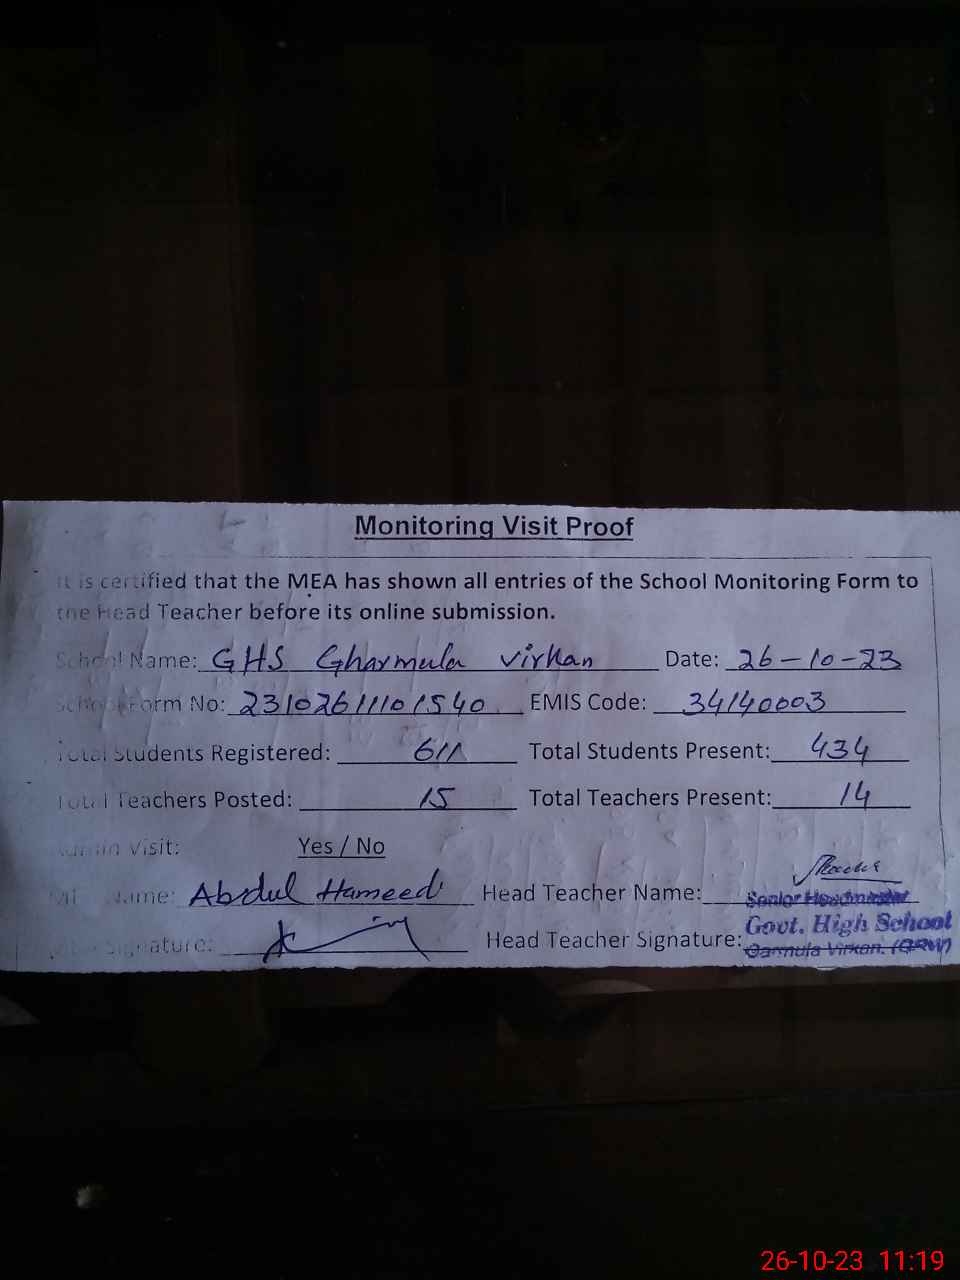 Monitoring Visit Proof
It is certified that the MEA has shown all entries of the School Monitoring Form to
the Head Teacher before its online submission.
School Name: GHS Gharmula Virkan Date: 26-10-23
School Form No: 23102611101540 EMIS Code: 34140003
Total Students Registered: 611 Total Students Present: 434
Total Teachers Posted: 15 Total Teachers Present: 14
Admin Visit: Yes / No
Name: Abdul Hameed Head Teacher Name:
Senior Headmaster
Signature: Head Teacher Signature: Govt. High School
Garmula Virkan. (GRW)
26-10-23 11:19